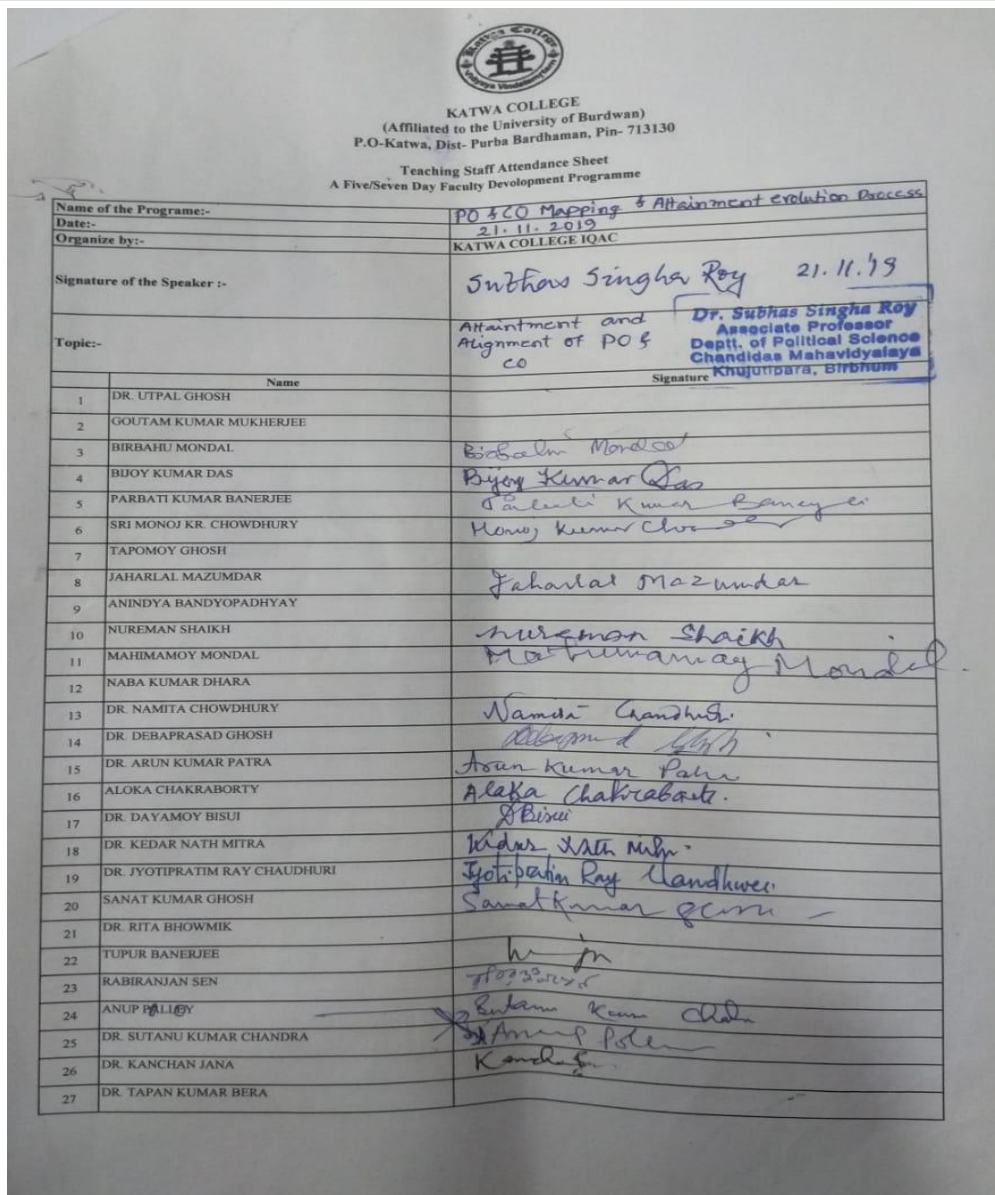 Katwa College
Vidyaya Vindatemritam
KATWA COLLEGE
(Affiliated to the University of Burdwan)
P.O-Katwa, Dist- Purba Bardhaman, Pin- 713130
Teaching Staff Attendance Sheet
A Five/Seven Day Faculty Devolopment Programme
Name of the Programe:- PO & CO Mapping & Attainment evolution Process
Date:- 21.11.2019
Organize by:- KATWA COLLEGE IQAC
Signature of the Speaker :- Subhas Singha Roy 21.11.'19
Topic:- Attaintment and Alignment of PO & CO
Dr. Subhas Singha Roy
Associate Professor
Deptt. of Political Science
Chandidas Mahavidyalaya
Khujutipara, Birbhum
Name Signature
1 DR. UTPAL GHOSH
2 GOUTAM KUMAR MUKHERJEE
3 BIRBAHU MONDAL Birbahu Mondal
4 BIJOY KUMAR DAS Bijoy Kumar Das
5 PARBATI KUMAR BANERJEE Parbati Kumar Banerjee
6 SRI MONOJ KR. CHOWDHURY Monoj Kumar
7 TAPOMOY GHOSH
8 JAHARLAL MAZUMDAR Jaharlal Mazumdar
9 ANINDYA BANDYOPADHYAY
10 NUREMAN SHAIKH Nureman Shaikh
11 MAHIMAMOY MONDAL Mahimamay Mondal.
12 NABA KUMAR DHARA
13 DR. NAMITA CHOWDHURY Namita Chaudhuri.
14 DR. DEBAPRASAD GHOSH
15 DR. ARUN KUMAR PATRA Arun Kumar Patra
16 ALOKA CHAKRABORTY Alaka Chakraborty.
17 DR. DAYAMOY BISUI DBisui
18 DR. KEDAR NATH MITRA Kedar Nath Mitra.
19 DR. JYOTIPRATIM RAY CHAUDHURI Jyotipratim Ray Chaudhuri
20 SANAT KUMAR GHOSH Sanat Kumar Ghosh
21 DR. RITA BHOWMIK
22 TUPUR BANERJEE
23 RABIRANJAN SEN
24 ANUP PALLOY Sutanu Kumar Chandra
25 DR. SUTANU KUMAR CHANDRA Anup
26 DR. KANCHAN JANA
27 DR. TAPAN KUMAR BERA